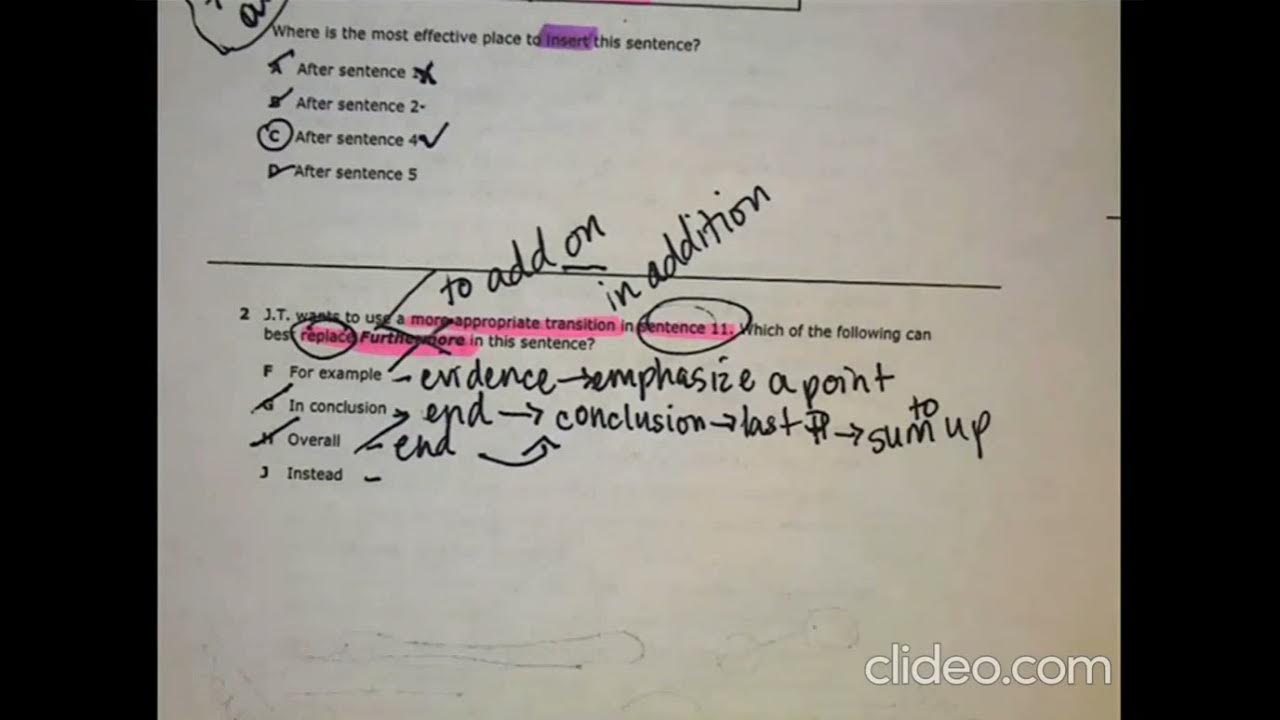 Where is the most effective place to insert this sentence?
A After sentence
B After sentence 2
C After sentence 4
D After sentence 5
to add on
in addition
2 J.T. wants to use a more appropriate transition in sentence 11. Which of the following can
best replace Furthermore in this sentence?
F For example – evidence → emphasize a point
G In conclusion → end → conclusion → last → to sum up
H Overall – end
J Instead –
clideo.com